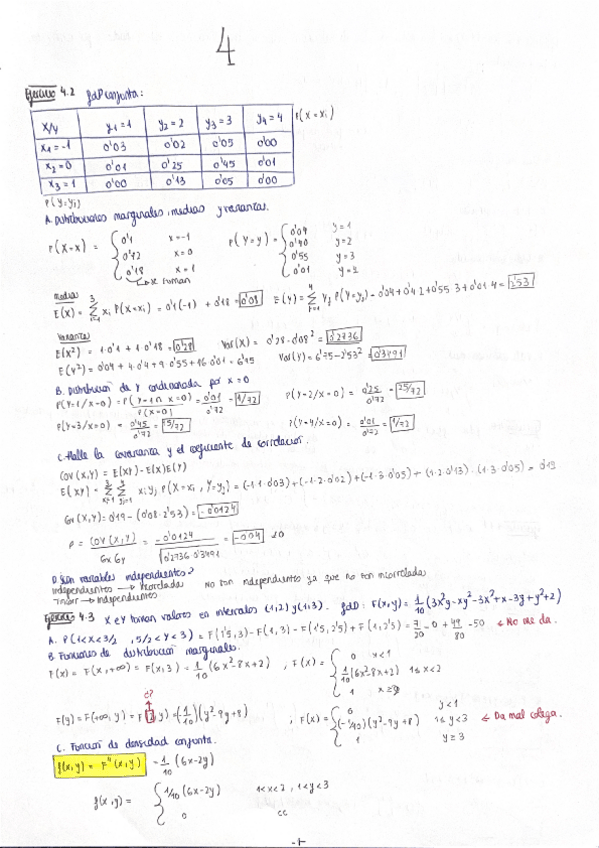 4
Ejercicio 4.2 fdP conjunta:
X/Y y1=1 y2=2 y3=3 y4=4 P(X=xi)
x1=-1 0'03 0'02 0'05 0'00
x2=0 0'01 0'25 0'45 0'01
x3=1 0'00 0'13 0'05 0'00
P(Y=yj)
A. Distribuciones marginales, medias y varianzas.
P(X=x) = { 0'1 x=-1 P(Y=y) = { 0'04 y=1
0'72 x=0 0'40 y=2
0'18 x=1 0'55 y=3
↳ se suman 0'01 y=2
medias
E(X) = Σ xi P(X=xi) = 0'1(-1) + 0'18 = 0'08 E(Y) = Σ yj P(Y=yj) = 0'04+0'4·2+0'55·3+0'01·4 = 2'53
Varianzas
E(X²) = 1·0'1 + 1·0'18 = 0'28 Var(X) = 0'28-0'08² = 0'2736
E(Y²) = 0'04 + 4·0'4 + 9·0'55 + 16·0'01 = 6'75 Var(Y) = 6'75-2'53² = 0'3491
B. Distribución de Y condicionada por X=0
P(Y=1/X=0) = P(Y=1 ∩ X=0) / P(X=0) = 0'01/0'72 = 1/72 P(Y=2/X=0) = 0'25/0'72 = 25/72
P(Y=3/X=0) = 0'45/0'72 = 45/72 P(Y=4/X=0) = 0'01/0'72 = 1/72
C. Halle la covarianza y el coeficiente de correlación.
COV(X,Y) = E(XY) - E(X)E(Y)
E(XY) = Σ Σ xi yj P(X=xi, Y=yj) = (-1·1·0'03)+(-1·2·0'02)+(-1·3·0'05)+(1·2·0'13)·(1·3·0'05) = 0'19
Cov(X,Y) = 0'19-(0'08·2'53) = -0'0124
ρ = COV(X,Y) / σx σy = -0'0124 / √0'2736·0'3491 = -0'04
D. ¿Son variables independientes?
Independientes → Incorreladas No son independientes ya que no son incorreladas
Tnorr → independientes
Ejercicio 4.3 X e Y toman valores en intervalos (1,2) y (1,3). fdD: F(x,y) = 1/10 (3x²y-xy²-3x²+x-3y+y²+2)
A. P(1<X<3/2, 5/2<Y<3) = F(1'5,3) - F(1,3) - F(1'5,2'5) + F(1,2'5) = 7/20 - 0 + 49/80 - 50 ← No me da.
B. Funciones de distribución marginales.
F(x) = F(x,+∞) = F(x,3) = 1/10 (6x²-8x+2), F(x) = { 0 x<1
1/10 (6x²-8x+2) 1≤x<2
1 x≥2
¿?
F(y) = F(+∞,y) = F(2,y) = (-1/10)(y²-9y+8) ; F(x) = { 0 y<1
(-1/10)(y²-9y+8) 1≤y<3 ← Da mal colega.
1 y≥3
C. Función de densidad conjunta.
f(x,y) = F"(x,y) = 1/10 (6x-2y)
f(x,y) = { 1/10 (6x-2y) 1<x<2, 1<y<3
0 cc
-1-